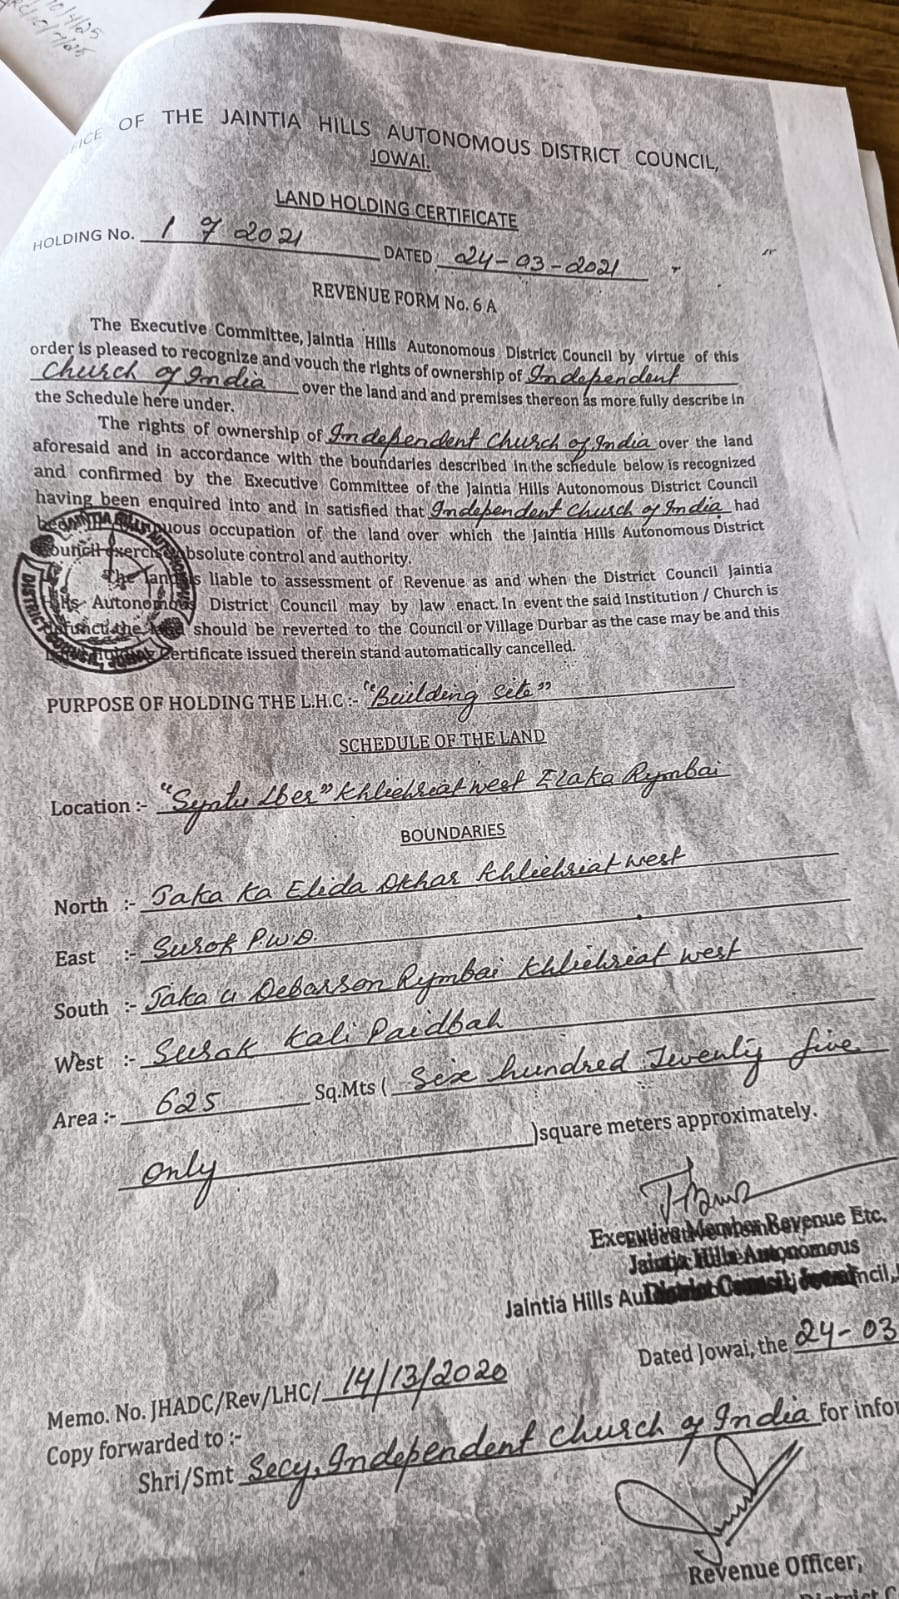 OF THE JAINTIA HILLS AUTONOMOUS DISTRICT COUNCIL,
JOWAI.
LAND HOLDING CERTIFICATE
HOLDING No. 1 of 2021 DATED 24-03-2021
REVENUE FORM No. 6 A
The Executive Committee, Jaintia Hills Autonomous District Council by virtue of this
order is pleased to recognize and vouch the rights of ownership of Independent
Church of India over the land and and premises thereon as more fully describe in
the Schedule here under.
The rights of ownership of Independent Church of India over the land
aforesaid and in accordance with the boundaries described in the schedule below is recognized
and confirmed by the Executive Committee of the Jaintia Hills Autonomous District Council
having been enquired into and in satisfied that Independent Church of India had
occupation of the land over which the Jaintia Hills Autonomous District
Council exercise absolute control and authority.
The land is liable to assessment of Revenue as and when the District Council Jaintia
Hills Autonomous District Council may by law enact. In event the said Institution / Church is
the should be reverted to the Council or Village Durbar as the case may be and this
Certificate issued therein stand automatically cancelled.
PURPOSE OF HOLDING THE L.H.C :- "Building site"
SCHEDULE OF THE LAND
Location :- Khliehriat west Elaka Rymbai
BOUNDARIES
North :- Jaka Ka Elida Dkhar Khliehriat west
East :- Surok P.W.D.
South :- Jaka u Debarson Rymbai Khliehriat west
West :- Surok Kali Paidbah
Area :- 625 Sq.Mts ( Six hundred Twenty five
only )square meters approximately.
Executive Member Revenue Etc.
Jaintia Hills Autonomous
Jaintia Hills Au District Council,
Dated Jowai, the 24-03
Memo. No. JHADC/Rev/LHC/ 14/13/2020
Copy forwarded to :-
Shri/Smt Secy, Independent Church of India for infor
Revenue Officer,
District C